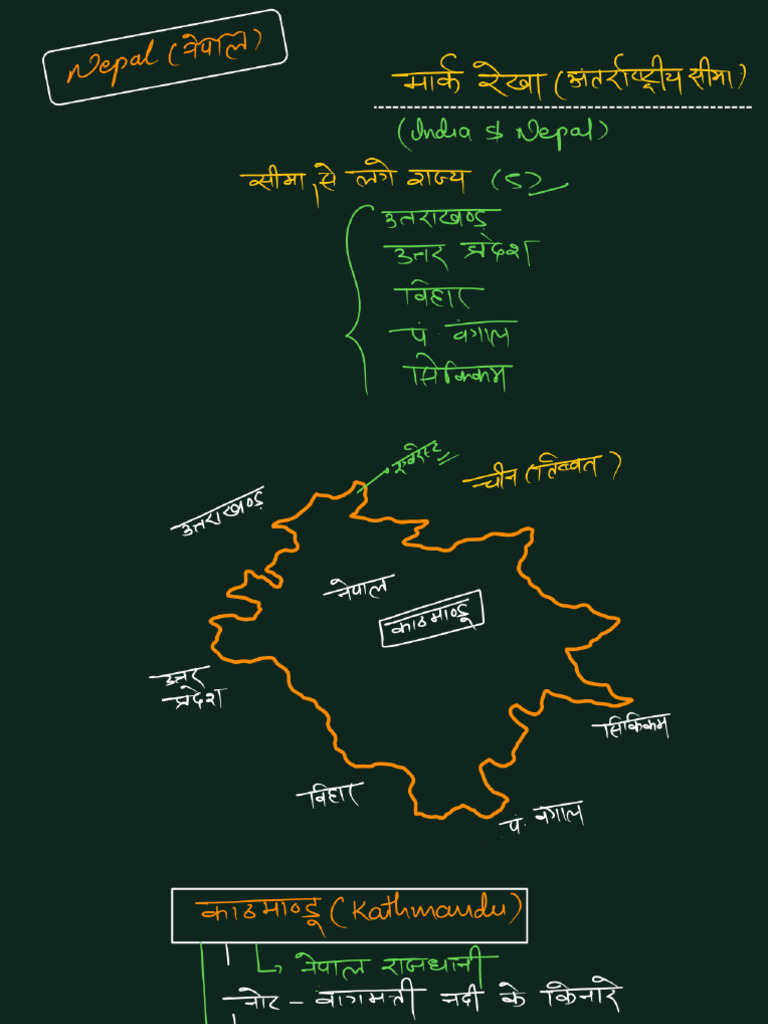 Nepal (नेपाल)
मार्क रेखा (अंतर्राष्ट्रीय सीमा)
(India & Nepal)
सीमा से लगे राज्य (5)
उत्तराखण्ड
उत्तर प्रदेश
बिहार
पं. बंगाल
सिक्किम
एवरेस्ट
चीन (तिब्बत)
उत्तराखण्ड
नेपाल
काठमाण्डू
उत्तर
प्रदेश
सिक्किम
बिहार
पं. बंगाल
काठमाण्डू (Kathmandu)
नेपाल राजधानी
नोट - बागमती नदी के किनारे